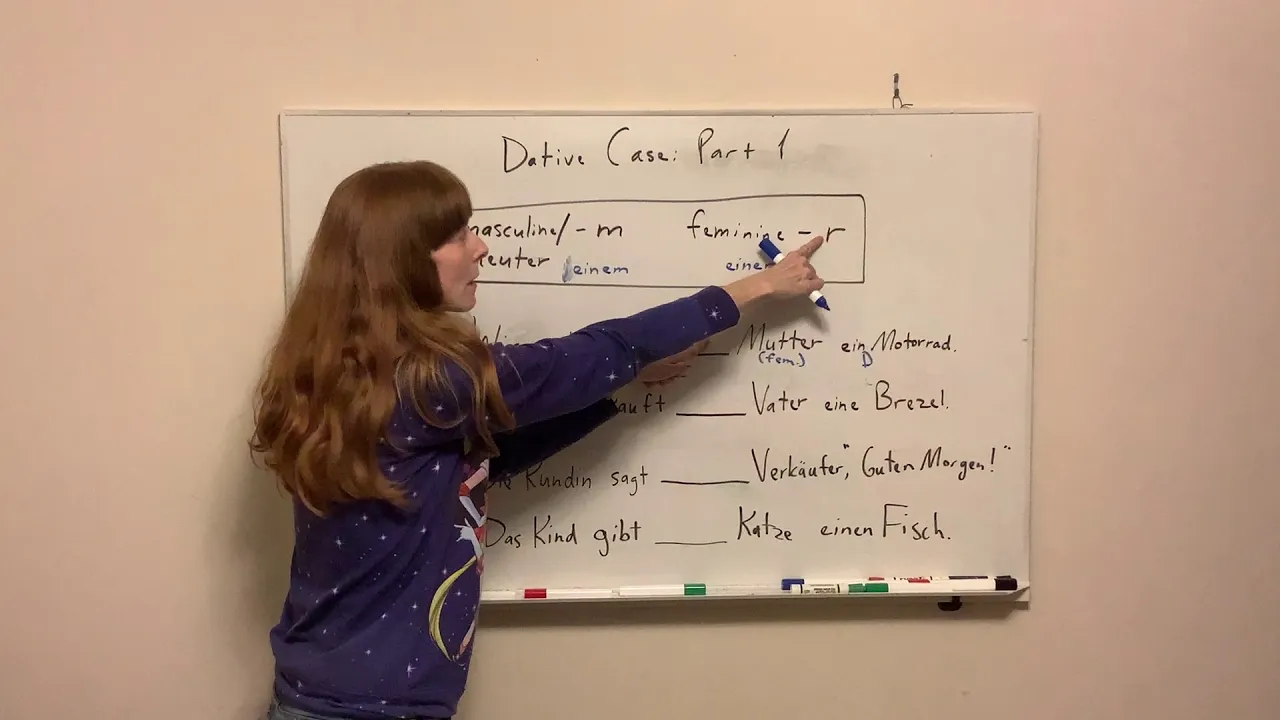 Dative Case: Part 1
masculine/ - m feminine - r
neuter einem
Mutter ein Motorrad.
(fem.) D
____ Vater eine Brezel.
Kundin sagt ____ Verkäufer, "Guten Morgen!"
Das Kind gibt ____ Katze einen Fisch.